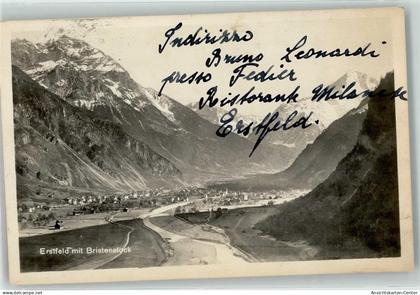 Indirizzo
Bruno Leonardi
presso Federier
Ristorant Milanese
Erstfeld.
Erstfeld mit Bristenstock
www.ansichtskarten-center.de
Ansichtskarten-Center